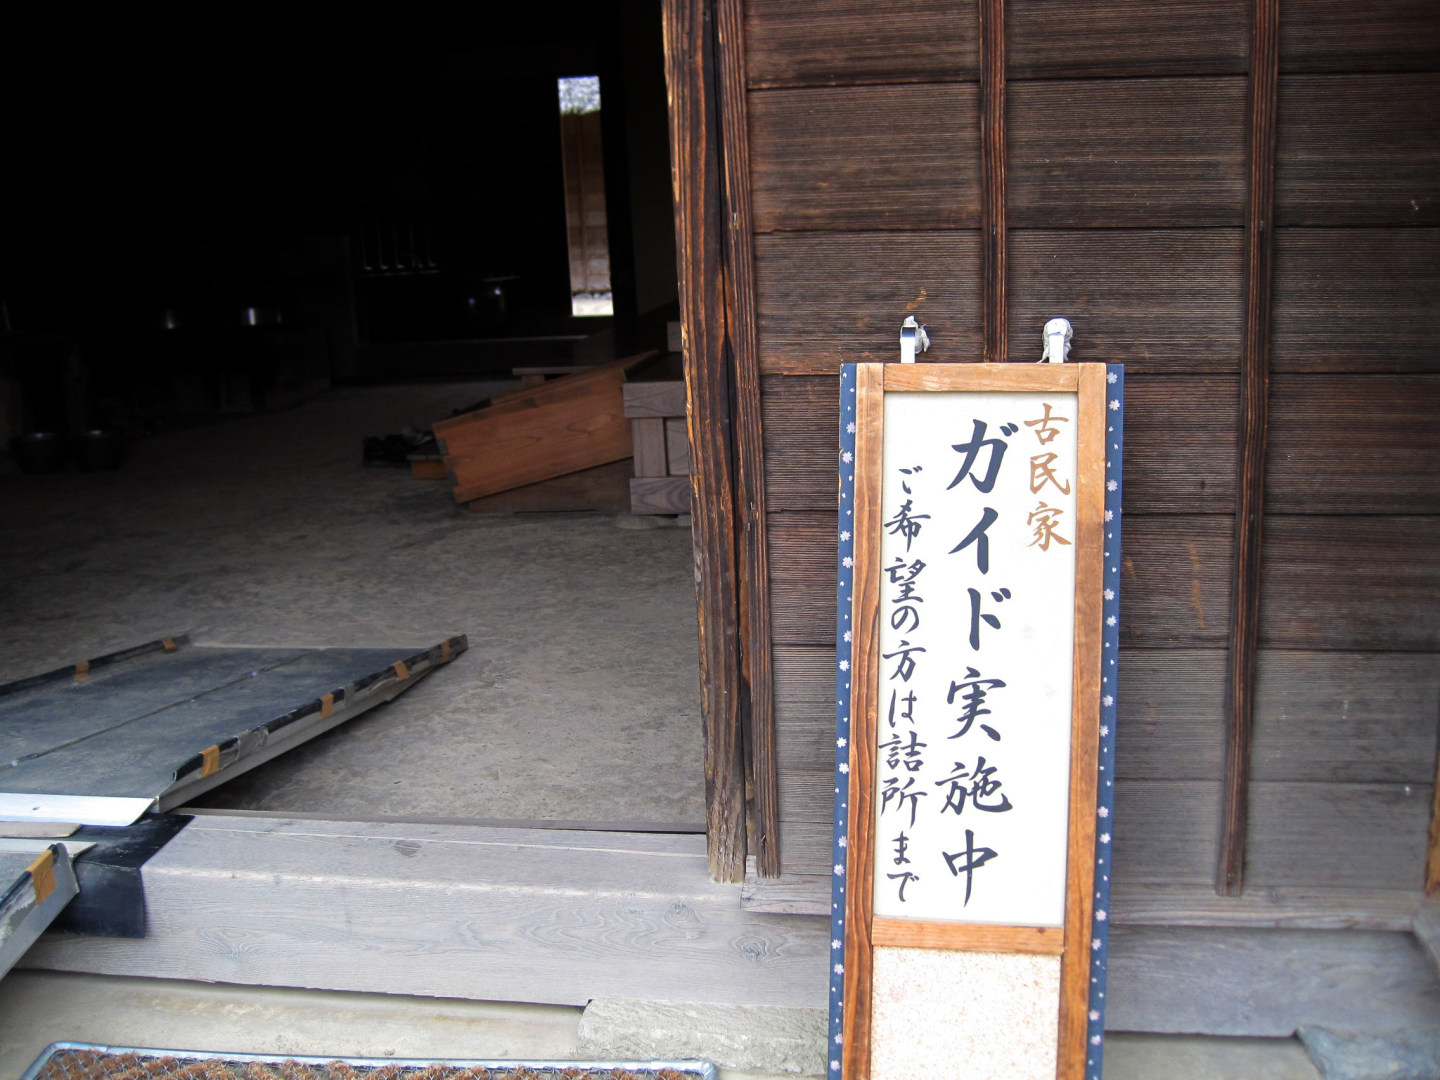 古民家
ガイド実施中
ご希望の方は詰所まで